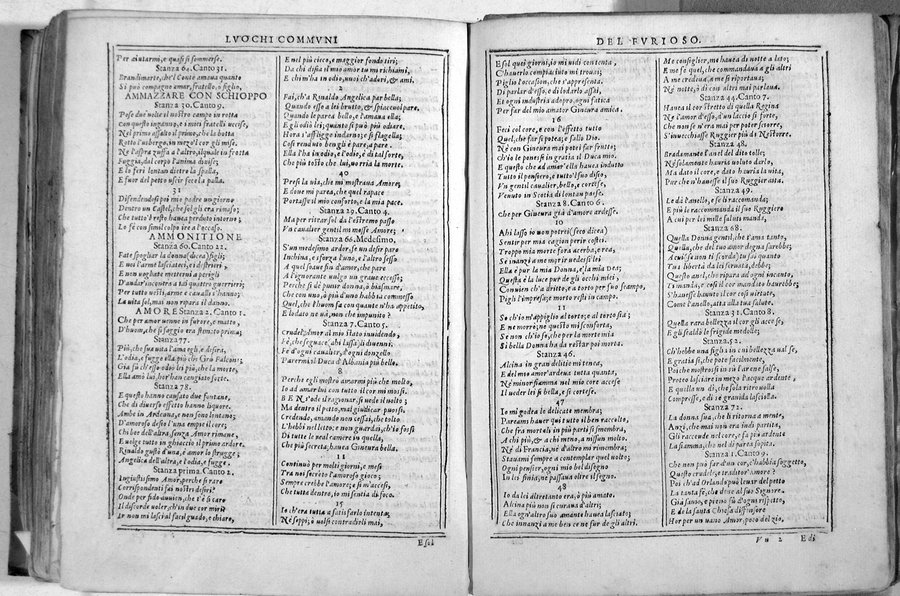 LVOCHI COMMVNI
Per aiutarmi, e quasi si sommerse.
Stanza 64. Canto 31.
Brandimarte, che'l Conte amaua quanto
Si può compagno amar, fratello, o figlio,
AMMAZZARE CON SCHIOPPO
Stanza 30. Canto 9.
Pose duo volte il nostro campo in rotta
Con questo inganno, e i miei fratelli uccise,
Nel primo assalto il primo, che la botta
Rotto l'usbergo, in mezo'l cor gli mise.
Ne l'altra zuffa a l'altro, il quale in frotta
Fuggia, dal corpo l'anima diuise;
E lo ferì lontan dietro la spalla,
E fuor del petto uscir fece la palla.
31
Difendendosi poi mio padre un giorno
Dentro un Castel, che sol gli era rimaso;
Che tutto'l resto hauea perduto intorno;
Lo fè con simil colpo ire a l'occaso.
AMMONITIONE
Stanza 60. Canto 22.
Fate spogliar la donna (dicea) figli;
E noi l'arme lasciateci, e i destrieri,
E non vogliate metterui a perigli
D'andar incontra a tai quattro guerrieri;
Per tutto vesti, arme e caualli s'hanno;
La vita sol, mai non ripara il danno.
AMORE Stanza 2. Canto 1.
Che per amor uenne in furore, e matto,
D'huom, che sì saggio era stimato prima;
Stanza 77.
Più, che sua vita l'ama egli, e desira,
L'odia, e fugge ella più, che Grù Falcone;
Già fù ch'esso odiò lei più, che la morte,
Ella amò lui, hor'han cangiato sorte.
Stanza 78.
E questo hanno causato due fontane,
Che di diuerso effetto hanno liquore.
Ambe in Ardenna, e non sono lontane;
D'amoroso desio l'una empie il core;
Chi bee dell'altra, senza Amor rimane,
E volge tutto in ghiaccio il primo ardore.
Rinaldo gustò d'una, e amor lo strugge;
Angelica dell'altra, e l'odia, e fugge.
Stanza prima. Canto 2.
Ingiustissimo Amor, perche sì raro
Corrispondenti fai nostri desiri?
Onde perfido auuien, che t'è sì caro
Il discorde voler, ch'in duo cor miri?
Ir non mi lasci al facil guado, e chiaro,
E nel più cieco, e maggior fondo tiri;
Da chi disia il mio amor tu mi richiami,
E chi m'ha in odio, vuoi ch'adori, & ami.
2
Fai, ch'a Rinaldo Angelica par bella;
Quando esso a lei brutto, e spiaceuol pare,
Quando le parea bello, e l'amaua ella;
Egli odiò lei; quanto si può più odiare,
Hora s'affligge indarno; e si flagella;
Così renduto ben gli è pare, a pare.
Ella l'ha in odio, e l'odio, è di tal sorte,
Che più tosto che lui, vorria la morte.
40
Presi la via, che mi mostraua Amore;
E done mi parea, che quel rapace
Portasse il mio conforto, e la mia pace.
Stanza 29. Canto 4.
Ma per ritrar sol da l'estremo passo
Vn caualier gentil mi messe Amore;
Stanza 66. Medesimo.
S'un medesimo ardor, se un desir pare
Inchina, e sforza l'uno, e l'altro sesso
A quel soaue fin d'amor, che pare
A l'ignorante volgo un graue eccesso;
Perche si dè punir donna, ò biasmare,
Che con uno, o più d'uno habbia commesso
Quel, che l'huom fa con quante n'hà appetito,
E lodato ne và, non che impunito?
Stanza 7. Canto 5.
Crudel Amor al mio stato inuidendo,
Fè, che seguace, ahi lassa, li diuenni:
Fè d'ogni caualier, d'ogni donzello.
Parermi il Duca d'Albania più bello.
8
Perche egli mostrò amarmi più che molto,
Io ad amar lui con tutto il cor mi mossi.
BEN s'ode il ragionar, si vede il volto;
Ma dentro il petto, mal giudicar puossi.
Credendo, amando non cessai, che tolto
L'hebbi nel letto; e non guardai, ch'io fossi
Di tutte le real camere in quella,
Che più secreta, hauea Gineura bella.
11
Continuò per molti giorni, e mesi
Tra noi secreto l'amoroso gioco;
Sempre crebbe l'amore; e sì m'accesi,
Che tutta dentro, io mi sentia di foco.
15
Io ch'era tutta a satisfarlo intenta;
Nè seppi, ò volsi contradirli mai,
E sol
DEL FVRIOSO.
E sol quei giorni, io mi vidi contenta,
C'hauerlo compiaciuto mi trouai;
Piglio l'occasion, che s'appresenta.
Di parlar d'esso, e di lodarlo assai,
Et ogni industria adopro, ogni fatica
Per far del mio amator Gineura amica.
16
Feci col core, e con l'effetto tutto
Quel, che far si potea, e sallo Dio.
Nè con Gineura mai potei far frutto;
Ch'io le ponessi in gratia il Duca mio.
E questo che ad amar'ella hauea indutto
Tutto il pensiero, e tutto'l suo disio,
Vn gentil caualier, bello, e cortese,
Venuto in Scotia di lontan paese.
Stanza 8. Canto 6.
Che per Gineura già d'amor ardesse.
10
Ahi lasso io non potrei (seco dicea)
Sentir per mia cagion perir costei.
Troppo mia morte fora acerba, e rea,
Se inanzi a me morir vedessi lei
Ella è pur la mia Donna, e la mia Dea;
Questa è la luce pur degli occhi miei,
Conuien ch'a dritto, e a torto per suo scampo,
Pigli l'impresa; e morto resti in campo.
So ch'io m'appiglio al torto; e al torto sia;
E ne morrò; ne questo mi sconforta,
Se non ch'io so, che per la morte mia
Sì bella Donna ha da restar poi morta.
Stanza 46.
Alcina in gran delitie mi tenea,
E del mio amor'ardeua tutta quanta,
Nè minor fiamma nel mio core accese
Il veder lei sì bella, e sì cortese.
47
Io mi godea le delicate membra;
Pareami hauer qui tutto il ben raccolto,
Che fra mortali in più parti si smembra,
A chi più, & a chi meno, a nissun molto.
Nè di Francia, nè d'altro mi rimembra;
Stauami sempre a contemplar quel volto;
Ogni pensier, ogni mio bel disegno
In lei finia, ne passaua oltre il segno.
48
Io da lei altretanto era, ò più amato.
Alcina più non si curaua d'altri;
Ella ogn'altro suo amante hauea lasciato;
Che innanzi a me ben ce ne fur de gli altri.
Me consiglier, me hauea dì notte a lato;
E me fe quel, che commandaua a gli altri
A me credeua, a me si riportaua;
Nè notte, ò dì con altri mai parlaua.
Stanza 44. Canto 7.
Hauea il cor stretto di quella Regina
Nè l'amor d'esso, d'un laccio sì forte,
Che non se n'era mai per poter sciorre,
S'inuecchiasse Ruggier più di Nestorre.
Stanza 48.
Bradamante l'anel del dito tolle;
Nè solamente hauria voluto darlo,
Ma dato il core, e dato hauria la vita,
Pur che n'hauesse il suo Ruggier aita.
Stanza 49.
Le dà l'anello, e se li raccomanda;
E più le raccomanda il suo Ruggiero
A cui per lei mille saluti manda,
Stanza 68.
Quella Donna gentil, che t'ama tanto,
Quella, che del tuo amor degna sarebbe;
A cui (se non ti scorda) tu sai quanto
Tua libertà da lei seruata, debbe;
Questo anel, che ripara ad ogni incanto,
Ti manda; e così il cor mandato haurebbe;
S'hauesse hauuto il cor così virtute,
Come l'anello, atta alla tua salute.
Stanza 31. Canto 8.
Quella rara bellezza il cor gli accese,
E gli scaldò le frigide medolle;
Stanza 52.
Ch'hebbe una figlia in cui bellezza ual se,
E gratia sì, che pote facilmente,
Poi che mostrossi in su l'arene salse,
Proteo lasciare in mezo l'acque ardente,
E quella un dì, che sola ritrouolla
Compresse, e di sè grauida lasciolla.
Stanza 72.
La donna sua, che li ritorna a mente,
Anzi, che mai non era indi partita,
Gli raccende nel core, e fa più ardente
La fiamma, che nel dì parea sopita,
Stanza 1. Canto 9.
Che non può far d'un cor, c'habbia soggetto,
Questo crudele, e traditor' Amore?
Poi ch'ad Orlando può leuar del petto
La tanta fè, che dene al suo Signore.
Già sauio, e pieno fù d'ogni rispetto,
E de la santa Chiesa difensore
Hor per un vano Amor, poco del zio,
Vu 2
E di